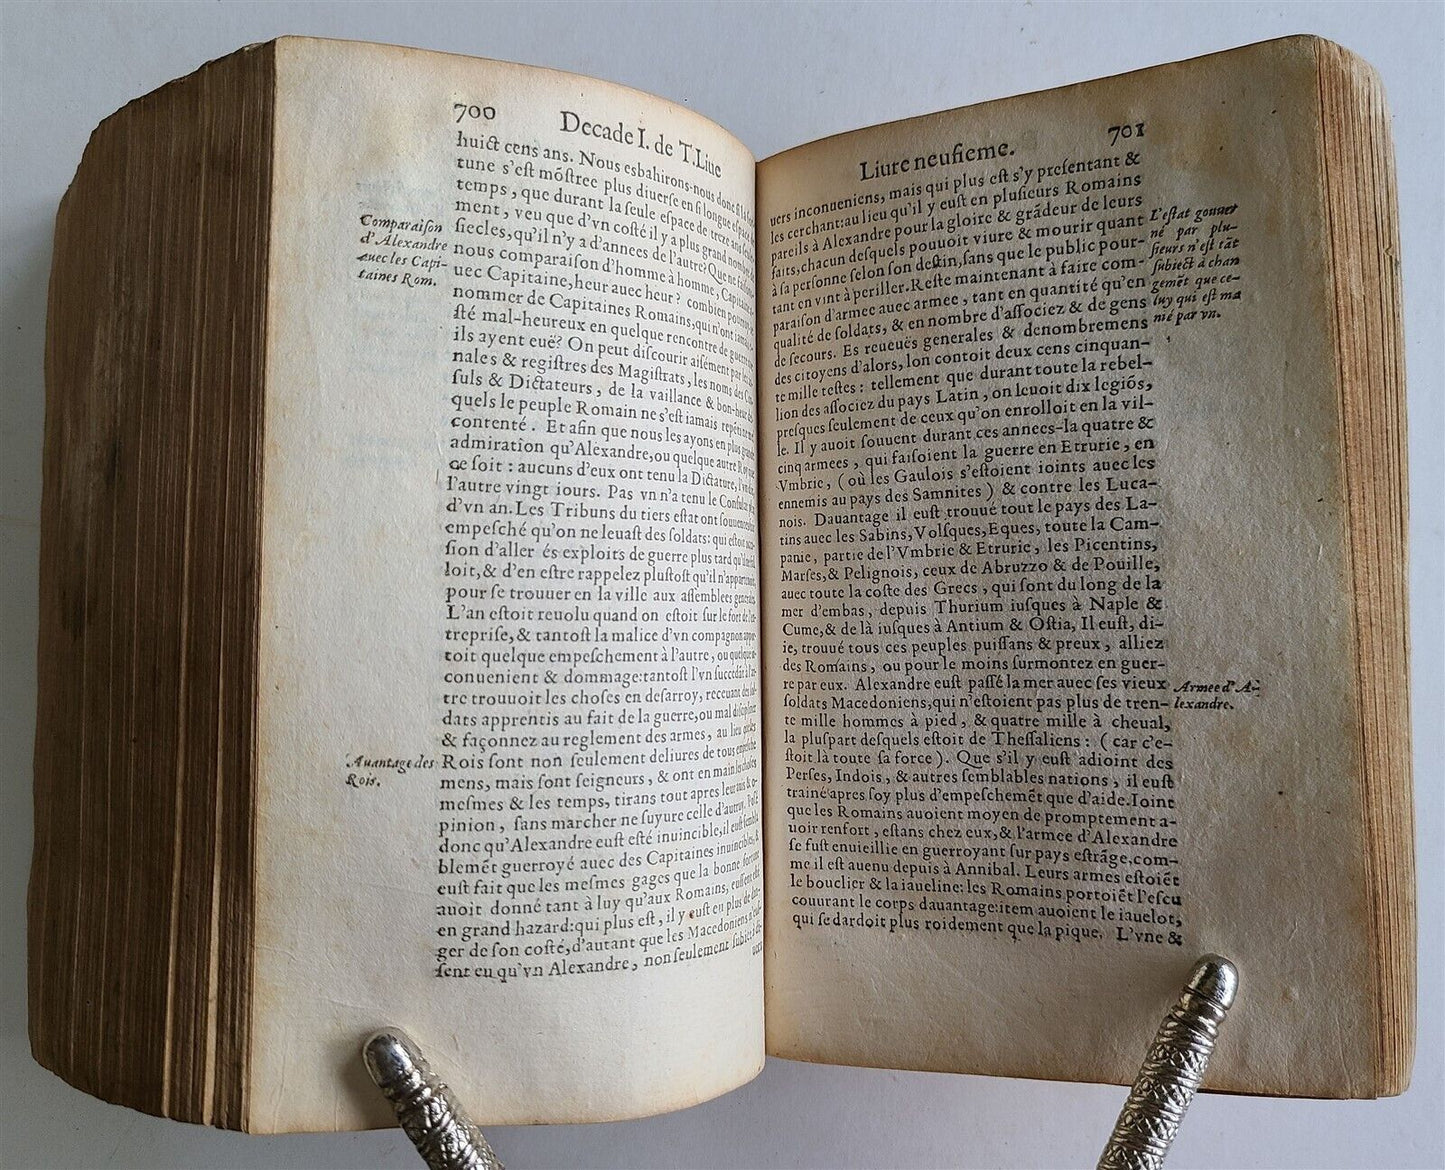 700 Decade I. de T. Liue
huict cens ans. Nous esbahirons-nous donc si la for-
tune s'est mõstree plus diuerse en si longue espace de
temps, que durant la seule espace de treze ans
ment, veu que d'vn costé il y a plus grand nombre de
siecles, qu'il n'y a d'annees de l'autre? Que ne
nous comparaison d'homme à homme, Capitaine
Comparaison
d'Alexandre
auec les Capi-
taines Rom.
uec Capitaine, heur auec heur? combien
nommer de Capitaines Romains, qui n'ont iamais
sté mal-heureux en quelque rencontre de guerre
ils ayent euë? On peut discourir aisément par les an-
nales & registres des Magistrats, les noms des Con-
suls & Dictateurs, de la vaillance & bon-heur des-
quels le peuple Romain ne s'est iamais repenti ne mes-
contenté. Et afin que nous les ayons en plus grande
admiratiõ qu'Alexandre, ou quelque autre Roy que
ce soit: aucuns d'eux ont tenu la Dictature,
l'autre vingt iours. Pas vn n'a tenu le Consulat plus
d'vn an. Les Tribuns du tiers estat ont souuentesfois
empesché qu'on ne leuast des soldats: qui estoit
sion d'aller és exploits de guerre plus tard qu'il ne fal-
loit, & d'en estre rappelez plustost qu'il n'appartenoit,
pour se trouuer en la ville aux assemblees generales.
L'an estoit reuolu quand on estoit sur le fort de l'en-
treprise, & tantost la malice d'vn compagnon appor-
toit quelque empeschement à l'autre, ou quelque in-
conuenient & dommage: tantost l'vn succedãt à l'au-
tre trouuoit les choses en desarroy, receuant des sol-
dats apprentis au fait de la guerre, ou mal disciplinez
& façonnez au reglement des armes, au lieu que les
Auantage des
Rois.
Rois sont non seulement deliures de tous empesche-
mens, mais sont seigneurs, & ont en main les choses
mesmes & les temps, tirans tout apres leur aus & o-
pinion, sans marcher ne suyure celle d'autruy.
donc qu'Alexandre eust esté inuincible, il eust sembla
blemẽt guerroyé auec des Capitaines inuincibles, &
eust fait que les mesmes gages que la bonne fortune
auoit donné tant à luy qu'aux Romains, eussent esté
en grand hazard: qui plus est, il y eust eu plus de dan-
ger de son costé, d'autant que les Macedoniens n'eus-
sent eu qu'vn Alexandre, non seulement subiect à di-
uers
Liure neufieme. 701
uers inconueniens, mais qui plus est s'y presentant &
les cerchant: au lieu qu'il y eust en plusieurs Romains
pareils à Alexandre pour la gloire & grãdeur de leurs
faits, chacun desquels pouuoit viure & mourir quant
à sa personne selon son destin, sans que le public pour-
tant en vint à periller. Reste maintenant à faire com-
paraison d'armee auec armee, tant en quantité qu'en
qualité de soldats, & en nombre d'associez & de gens
de secours. Es reueuës generales & denombremens
L'estat gouuer
né par plu-
sieurs n'est tãt
subiect à chan
gemẽt que ce-
luy qui est ma
nié par vn.
des citoyens d'alors, lon contoit deux cens cinquan-
te mille testes: tellement que durant toute la rebel-
lion des associez du pays Latin, on leuoit dix legiõs,
presques seulement de ceux qu'on enrolloit en la vil-
le. Il y auoit souuent durant ces annees-la quatre &
cinq armees, qui faisoient la guerre en Etrurie, en
Vmbrie, (où les Gaulois s'estoient ioints auec les
ennemis au pays des Samnites) & contre les Luca-
nois. Dauantage il eust trouué tout le pays des La-
tins auec les Sabins, Volsques, Eques, toute la Cam-
panie, partie de l'Vmbrie & Etrurie, les Picentins,
Marses, & Pelignois, ceux de Abruzzo & de Pouille,
auec toute la coste des Grecs, qui sont du long de la
mer d'embas, depuis Thurium iusques à Naple &
Cume, & de là iusques à Antium & Ostia, Il eust, di-
ie, trouué tous ces peuples puissans & preux, alliez
des Romains, ou pour le moins surmontez en guer-
re par eux. Alexandre eust passé la mer auec ses vieux
soldats Macedoniens, qui n'estoient pas plus de tren-
Armee d'A-
lexandre.
te mille hommes à pied, & quatre mille à cheual,
la pluspart desquels estoit de Thessaliens: (car c'e-
stoit là toute sa force). Que s'il y eust adioint des
Perses, Indois, & autres semblables nations, il eust
trainé apres soy plus d'empeschemẽt que d'aide. Ioint
que les Romains auoient moyen de promptement a-
uoir renfort, estans chez eux, & l'armee d'Alexandre
se fust enuieillie en guerroyant sur pays estrãge, com-
me il est auenu depuis à Annibal. Leurs armes estoiẽt
le bouclier & la iaueline: les Romains portoiẽt l'escu
couurant le corps dauantage: item auoient le iauelot,
qui se dardoit plus roidement que la pique. L'vne &